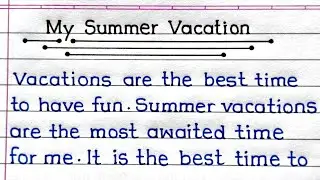 My Summer Vacation
Vacations are the best time
to have fun. Summer vacations
are the most awaited time
for me. It is the best time to